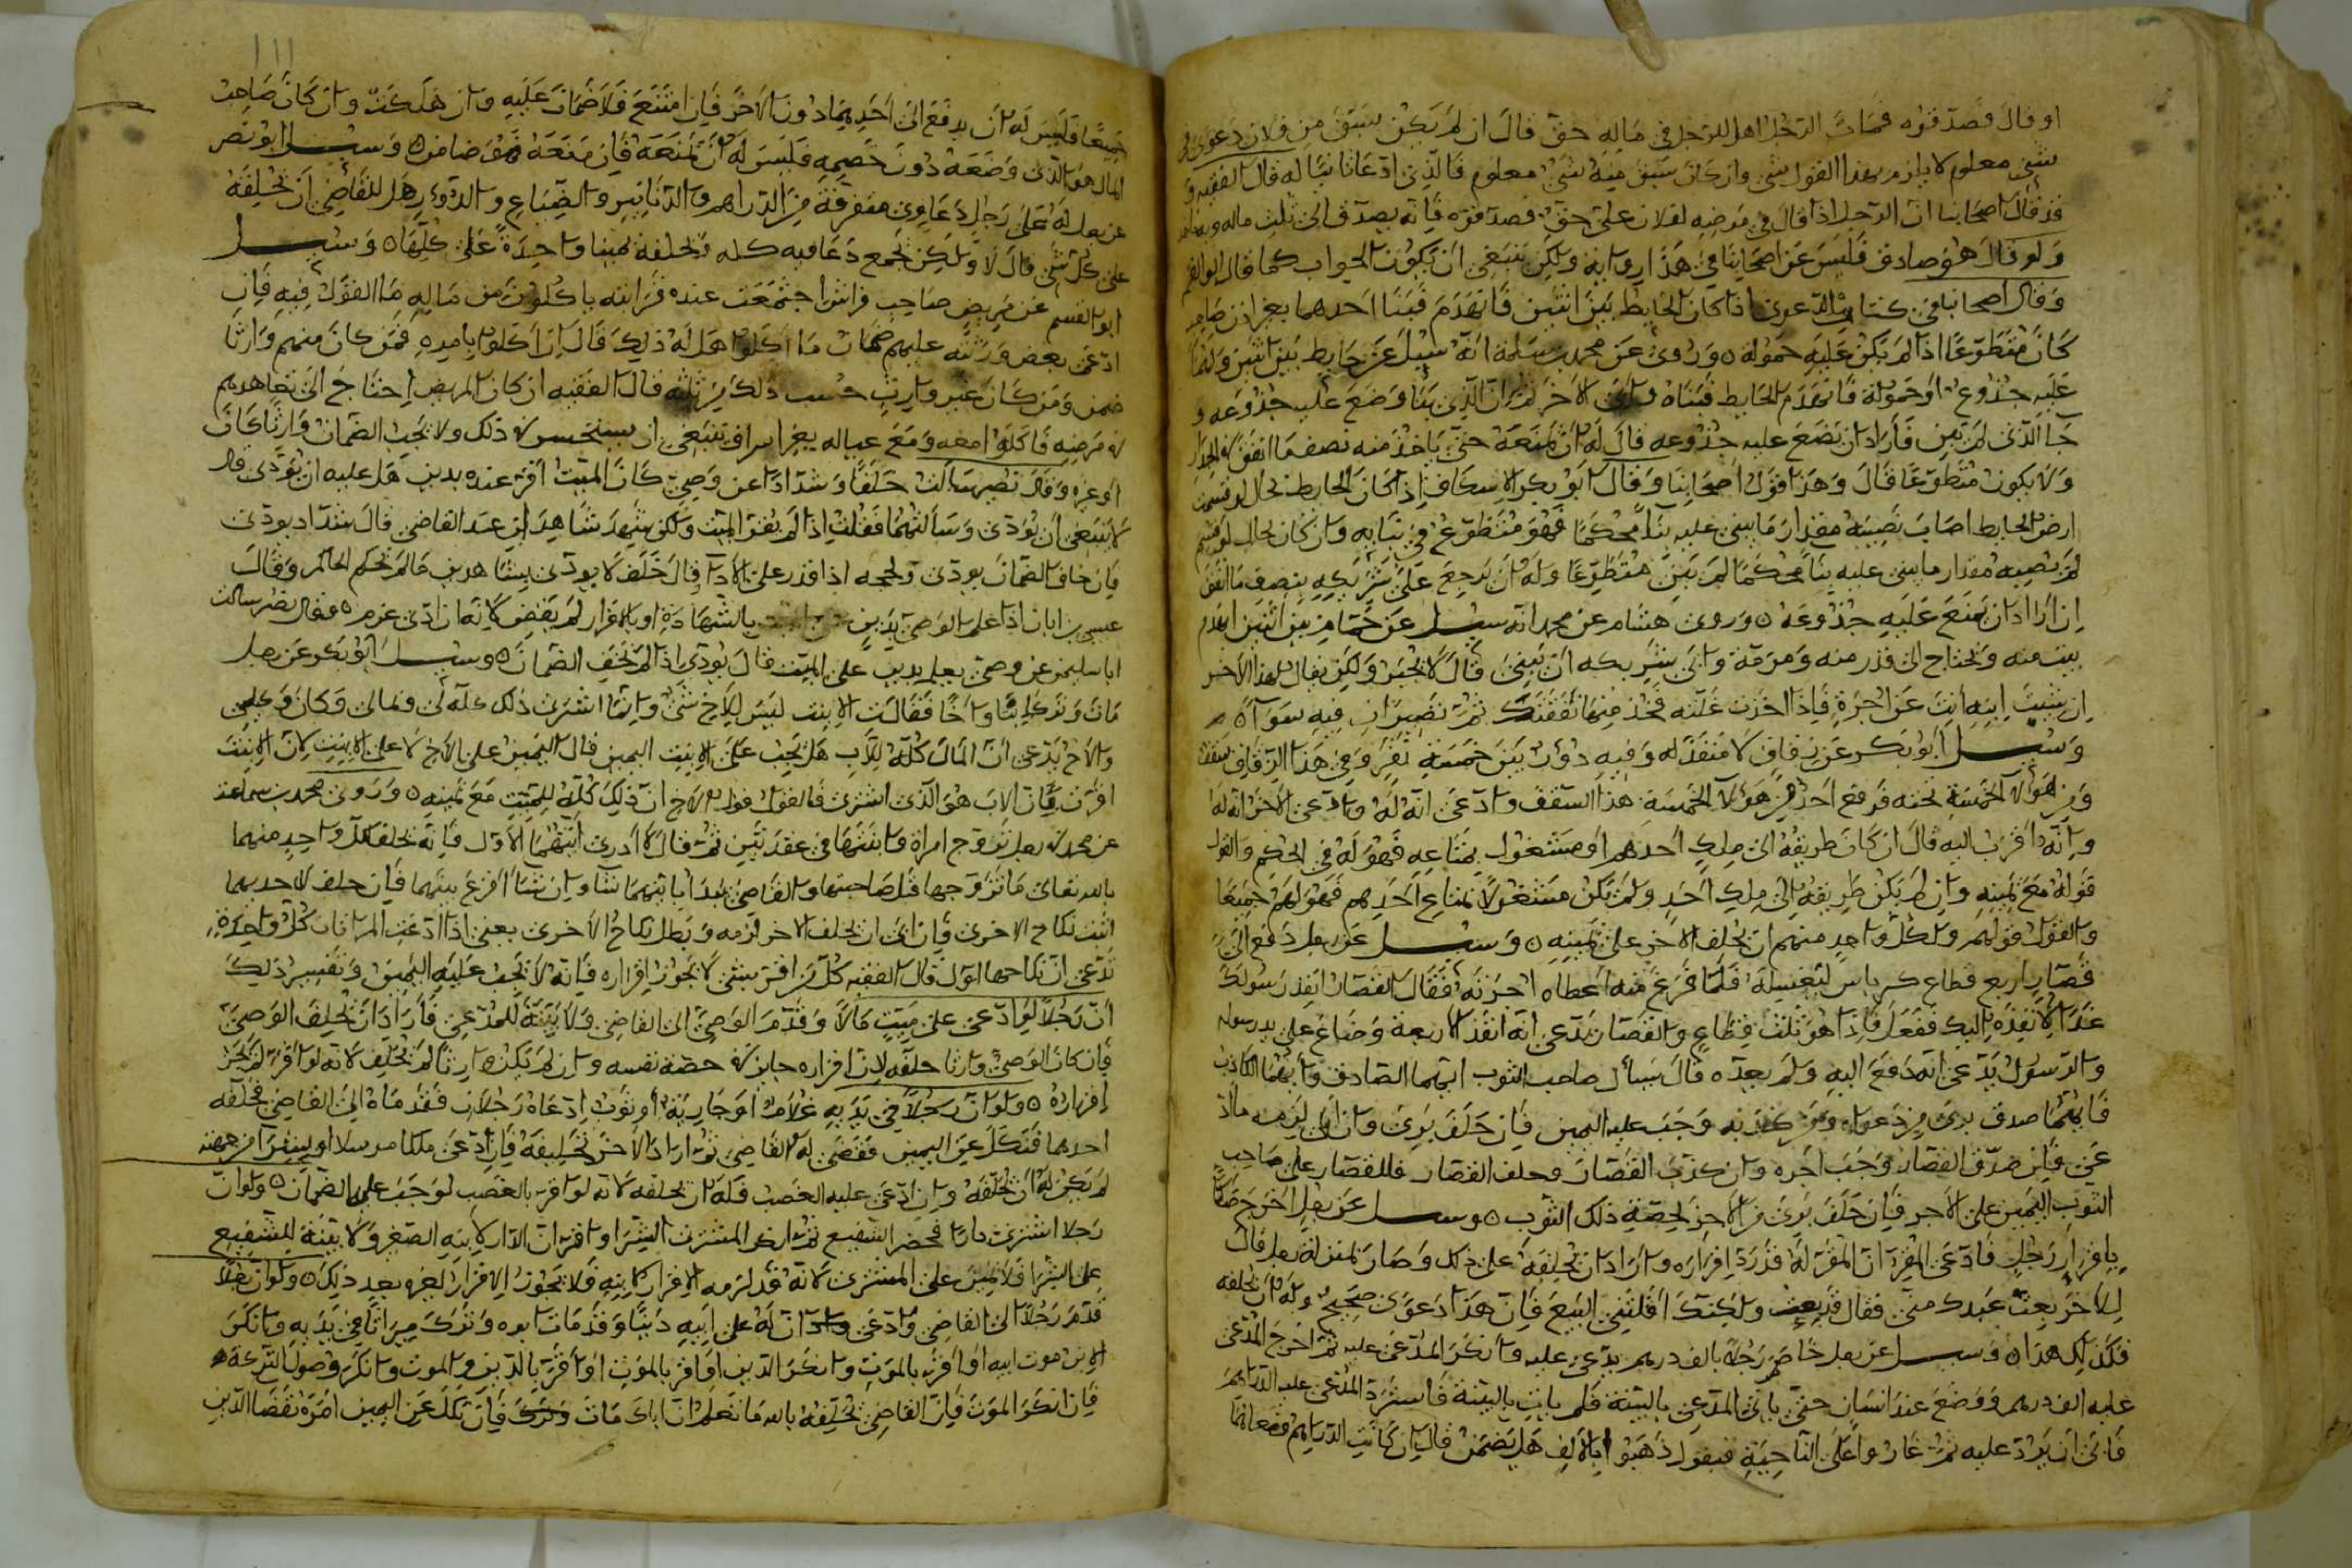 او قال فصدقوه فمات الرجل اهل للرجل في ماله حق قال ان لم يكن سبق من فلان دعوى في
شيء معلوم لا يلزم بهذا القول شيء وان كان سبق منه شيء معلوم فالذي ادعا ثابتا له قال الفقيه و
قد قال اصحابنا ان الرجل اذا قال في مرضه لفلان علي حق فصدقوه فانه يصدق الى ثلث ماله
ولو قال هو صادق فليس عن اصحابنا في هذا رواية ولكن ينبغي ان يكون الجواب كما قال ابو القسم
وقال اصحابنا في كتاب الدعوى اذا كان الحايط بين اثنين فانهدم فبنا احدهما بغير اذن صاحبه
كان متطوعا اذا لم يكن عليه حمولة ٥ وروى عن محمد بن سلمة انه سئل عن حايط بين اثنين ولهما
عليه جذوع او حمولة فانهدم الحايط فبناه وابى الاخر ثم ان الذي بنا وضع عليه جذوعه و
جا الذي لم يبن فاراد ان يضع عليه جذوعه قال له ان يمنعه حتى ياخذ منه نصف ما انفق في الجدار
ولا يكون متطوعا قال وهذا قول اصحابنا وقال ابو بكر الاسكاف اذا كان الحايط بحال لو قسمت
ارض الحايط اصاب نصيبه مقدار ما يبنى عليه بنا محكما فهو متطوع في بنايه وان كان بحال لو قسم
لم نصيبه مقدار ما يبنى عليه بنا محكما لم يبن متطوعا وله ان يرجع على شريكه بنصف ما انفق
ان اراد ان يمنع عليه جذوعه ٥ وروى هشام عن محمد انه سئل عن حمام بين اثنين انهدم
بيت منه ويحتاج الى قدر منه ومرمة وابى شريكه ان يبني قال لا يجبر ولكن يقال لهذا الاخر
ان شيت ابنه انت عن اجرة فاذا اخذت غلته فخذ منها نفقتك ثم تصيران فيه سواء ٥
وسئل ابو بكر عن زقاق لا منفذ له وفيه دور بين خمسة نفر وفي هذا الزقاق سقف
ومن هؤلاء الخمسة تحته فرفع احد من هؤلاء الخمسة هذا السقف وادعى انه له وادعى الاخر انه له
وانه اقرب اليه قال ان كان طريقه الى ملك احدهم او مشغول بمتاعه فهو له في الحكم والقول
قوله مع يمينه وان لم يكن طريقه الى ملك احد ولم يكن مشغولا بمتاع احدهم فهو لهم جميعا
والقول قولهم ولكل واحد منهم ان يحلف الاخر على يمينه ٥ وسئل عن رجل دفع الى
قصار اربع قطاع كرباس ليغسله فلما فرغ منه اعطاه اجرته فقال القصار انفذ رسولك
غدا لانفذه اليك ففعل فاذا هو ثلث قطاع والقصار يدعي انه انفذ الاربعة وضاع على يد رسوله
والرسول يدعي انه دفع اليه ولم يعده قال يسأل صاحب الثوب ايهما الصادق وايهما الكاذب
فايهما صدق برئ من دعواه ومن كذبه وجب عليه اليمين فان حلف برئ وان ابى لزمه ما اد
عى فان صدق القصار وجب اجره وان كذب القصار وحلف القصار فللقصار على صاحب
الثوب اليمين على الاجر فان حلف برئ من الاجر بحصة ذلك الثوب ٥ وسئل عن رجل اخر خصما
باقرار رجل فادعى المقر ان المقر له قد رد اقراره واراد ان يحلفه على ذلك وصار بمنزلة رجل قال
للاخر بعت عبدك مني فقال قد بعت ولكنك اقلتني البيع فان هذا دعوى صحيح وله ان يحلفه
فكذلك هذا ٥ وسئل عن رجل خاصم رجلا بالف درهم يدعي عليه وانكر المدعى عليه ثم اخرج المدعى
عليه الف درهم ووضع عند انسان حتى ياتي المدعي بالبينة فلم يات بالبينة فاسترد المدعى عليه الدراهم
فابى ان يرد عليه ثم غاروا على الناحية فيقول ذهبوا بالالف هل يضمن قال ان كانت الدراهم وضعاها
١١١
جميعا فليس له ان يدفع الى احدهما دون الاخر فان امتنع فلا ضمان عليه وان هلكت وان كان صاحب
المال هو الذي وضعه دون خصمه فليس له ان يمنعه فان منعه فهو ضامن ٥ وسئل ابو نصر
عن رجل له على رجل دعاوي متفرقة من الدراهم والدنانير والضياع والدور هل للقاضي ان يحلفه
على كل شي قال لا ولكن يجمع دعاويه كله فيحلفه يمينا واحدة على كلها ٥ وسئل
ابو القسم عن مريض صاحب فراش اجتمعت عنده قرابته ياكلون من ماله ما القول فيه فان
ادعى بعض ورثته عليهم ضمان ما اكلوا هل له ذلك قال ان اكلوا بامره فمن كان منهم وارثا
ضمن ومن كان غير وارث حسب ذلك من ثلثه قال الفقيه ان كان المريض احتاج الى تعاهدهم
في مرضه فاكلوا معه ومع عياله بغير اسراف ينبغي ان يستحسن في ذلك ولا يجب الضمان وارثا كان
او غيره وقال نصير سالت خلفا وشدادا عن وصي كان الميت اقر عنده بدين هل عليه ان يؤدي قال
لا ينبغي ان يؤدي وسألتهما فقلت اذا لم يقر الميت ولكن شهد شاهدان عند القاضي قال شداد يودي
فان خاف الضمان يودي ولحجه اذا قدر على الاداء وقال خلف لا يودي بشاهدين ما لم يحكم الحاكم وقال
عيسى بن ابان اذا علم الوصي بدين بالشهادة او بالاقرار لم يقض لانه ان ادى غرم ٥ وقال نصر سالت
ابا سليمن عن وصي يعلم بدين على الميت قال يودي اذا لم يخف الضمان ٥ وسئل ابو بكر عن رجل
مات وترك ابنتا واخا فقالت الابنت ليس للاخ شي وانما اشترى ذلك كله لي ومالي وكان وكيلي
والاخ يدعي ان المال كله للاب هل يجب على الابنت اليمين قال اليمين على الاخ لا على الابنت لان الابنت
اقرت بان الاب هو الذي اشترى فالقول قول الاخ ان ذلك كله للميت مع يمينه ٥ وروى محمد بن سماعة
عن محمد في رجل تزوج امراة وابنتها في عقدتين ثم قال لا ادري ايتهما الاول فانه يحلف لكل واحد منهما
بالله تعالى ما تزوجها قبل صاحبتها والقاضي يبدا بايتهما شا وان شا اقرع بينهما فان حلف لاحديهما
اثبت نكاح الاخرى وان ابى ان يحلف للاخر لزمه وبطل نكاح الاخرى يعني اذا ادعت المراتان كل واحدة
تدعي ان نكاحها اول قال الفقيه كل من اقر بشي لا يجوز اقراره فانه لا يجب عليه اليمين وتفسير ذلك
ان رجلا لو ادعى على ميت مالا وقدم الوصي الى القاضي ولا بينة للمدعي فاراد ان يحلف الوصي
فان كان الوصي وارثا حلفه لان اقراره جايز في حصة نفسه وان لم يكن وارثا لم يحلف لانه لو اقر لم يجز
اقراره ٥ ولو ان رجلا في يديه غلام او جارية او ثوب ادعاه رجلان فقدماه الى القاضي فحلفه
احدهما فنكل عن اليمين فقضى له القاضي ثم اراد الاخر تحليفه فان ادعى ملكا مرسلا او بشرا من جهته
لم يكن له ان يحلفه وان ادعى عليه الغصب فله ان يحلفه لانه لو اقر بالغصب لوجب عليه الضمان ٥ ولو ان
رجلا اشترى دارا فحضر الشفيع ثم انكر المشتري الشرا واقر ان الدار لابنه الصغير ولا بينة للشفيع
على الشرا فلا يمين على المشتري لانه قد لزمه الاقرار لابنه فلا يجوز الاقرار لغيره بعد ذلك ٥ ولو ان رجلا
قدم رجلا الى القاضي وادعى ان له على ابيه دينا وقد مات ابوه وترك ميراثا في يديه وانكر
الابن موت ابيه او اقر بالموت وانكر الدين او اقر بالموت او اقر بالدين والموت وانكر وصول التركة
فان انكر الموت فان القاضي يحلفه بالله ما تعلم ان اباك مات وترك فان نكل عن اليمين امره بقضا الدين